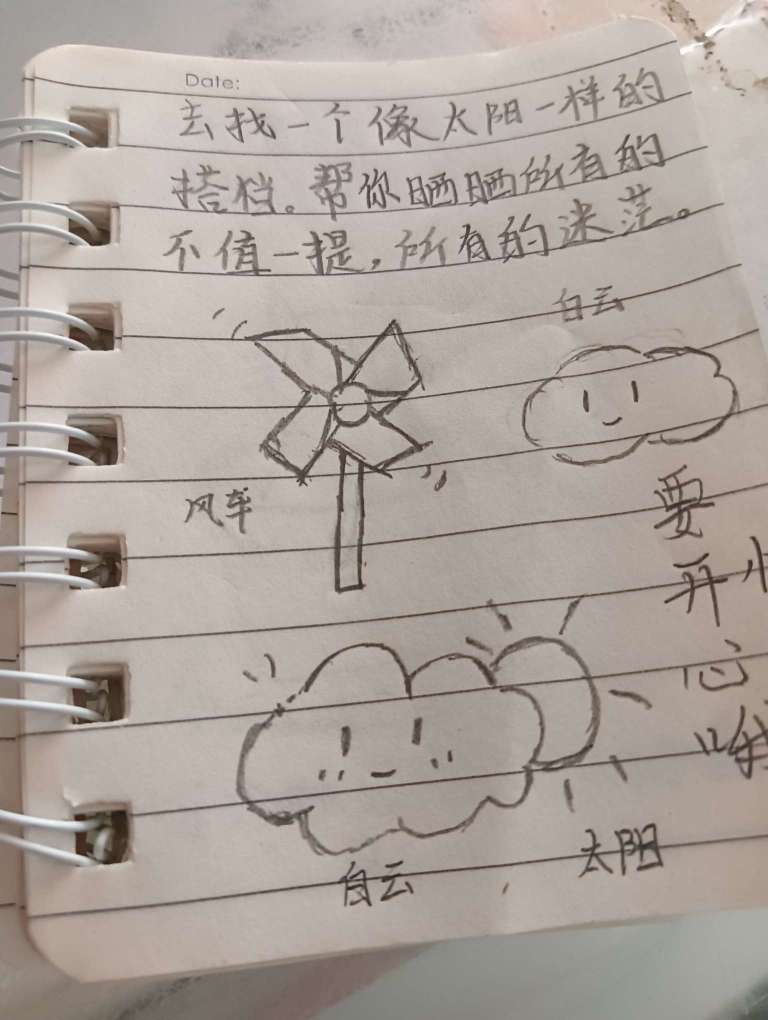 Date:
去找一个像太阳一样的
搭档。帮你晒晒所有的
不值一提，所有的迷茫。
白云
风车
要
开
心
哦
白云
太阳